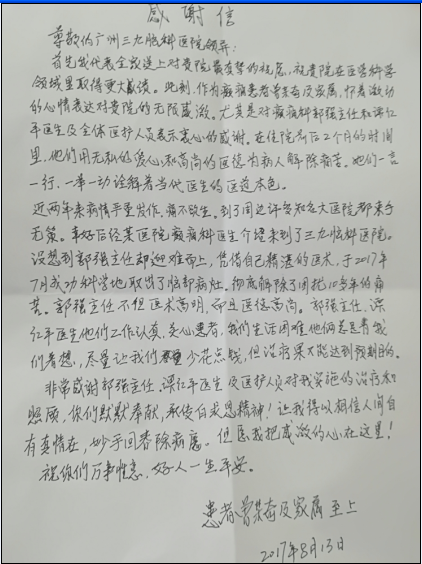 感谢信
尊敬的广州三九脑科医院领导:
首先我代表全家送上对贵院最真挚的祝愿,祝贵院在医学科学
领域里取得更大成绩。此刻,作为癫痫患者曾某奇及家属,怀着激动
的心情表达对贵院的无限感激。尤其是对癫痫科郭强主任和谭红
平医生及全体医护人员表示衷心的感谢。在住院前后2个月的时间
里,他们用无私的爱心和高尚的医德为病人解除病苦。她们一言
一行、一举一动诠释着当代医生的医道本色。
近两年来病情严重发作,痛不欲生。到了周边许多知名大医院都束手
无策。幸好后经某医院癫痫科医生介绍来到了三九脑科医院。
没想到郭强主任却迎难而上,凭借自己精湛的医术,于2017年
7月成功科学地取出了脑部病灶。彻底解除了困扰10多年的痛
苦。郭强主任不但医术高明,而且医德高尚。郭强主任、谭
红平医生他们工作认真,关心患者,我们生活困难他俩总是替我
们着想,尽量让我们少花点钱,但治疗效果才能达到预期目的。
非常感谢郭强主任、谭红平医生及医护人员对我实施的治疗和
照顾,你们默默奉献,承传白求恩精神!让我得以相信人间自
有真情在,妙手回春除病魔。但愿我把感激的心在这里!
祝你们万事胜意,好人一生平安。
患者曾某奇及家属 至上
2017年8月13日